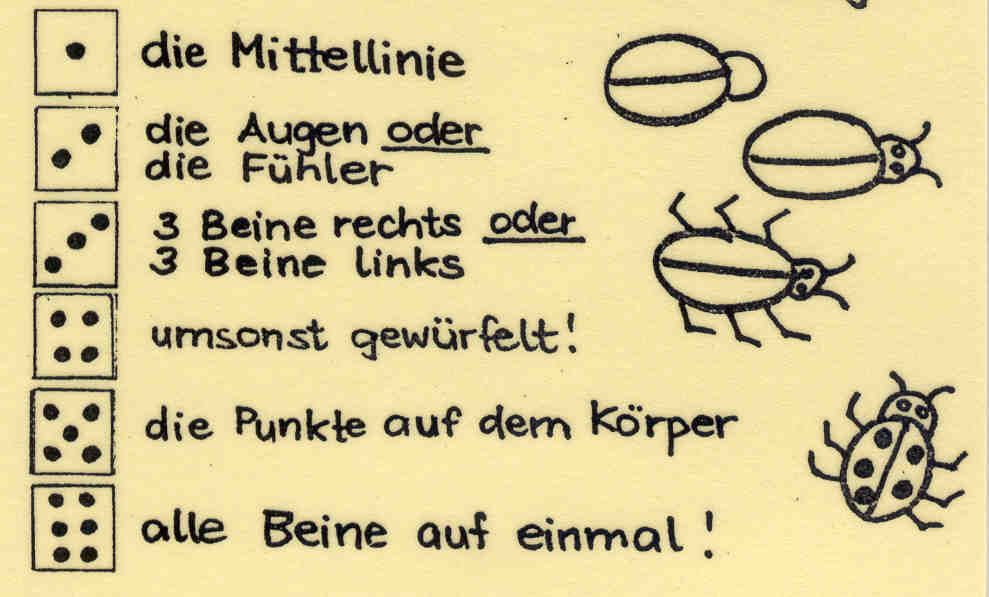 die Mittellinie
die Augen oder
die Fühler
3 Beine rechts oder
3 Beine links
umsonst gewürfelt!
die Punkte auf dem Körper
alle Beine auf einmal!